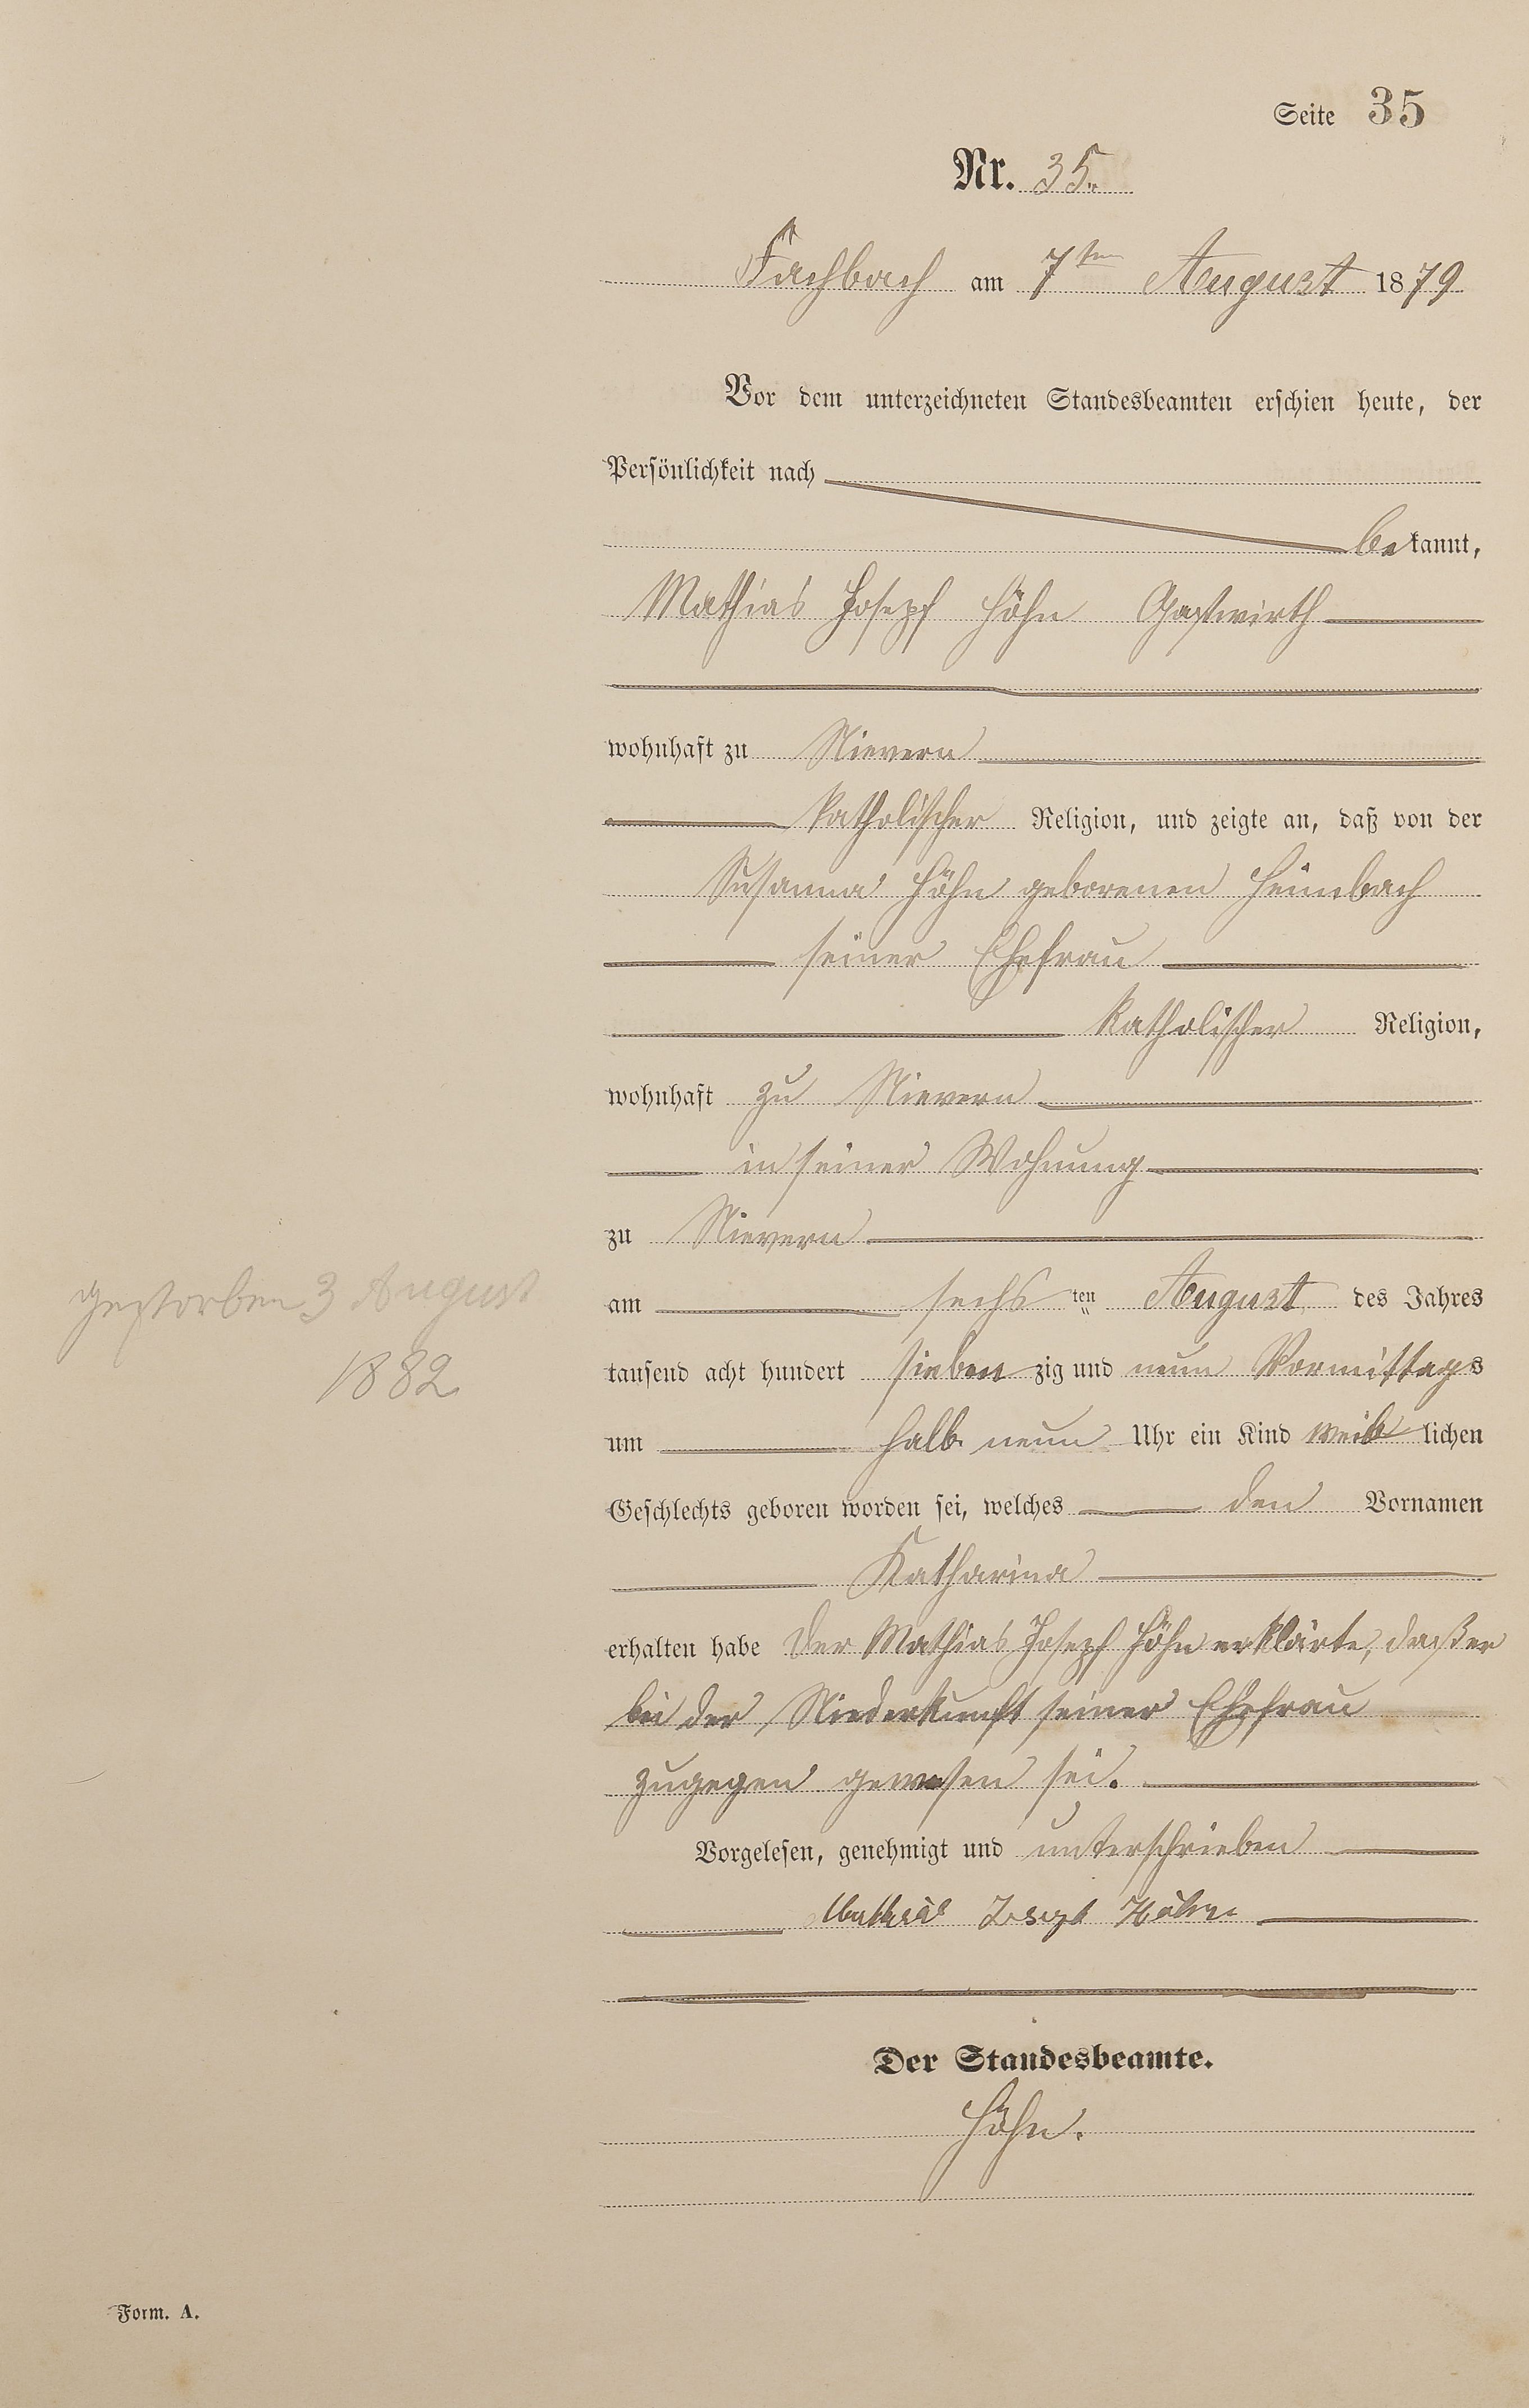 Seite 35
Nr. 35.
Fachbach am 7ten August 1879
Vor dem unterzeichneten Standesbeamten erschien heute, der
Persönlichkeit nach
bekannt,
Mathias Joseph Höhn Gastwirth
wohnhaft zu Nievern
katholischer Religion, und zeigte an, daß von der
Susanna Höhn geborenen Heimbach
seiner Ehefrau
katholischer Religion,
wohnhaft zu Nievern
in seiner Wohnung
zu Nievern
am sechsten August des Jahres
tausend acht hundert siebenzig und neun Vormittags
um halb neun Uhr ein Kind weiblichen
Geschlechts geboren worden sei, welches den Vornamen
Katharina
erhalten habe Der Mathias Joseph Höhn erklärte, daß er
bei der Niederkunft seiner Ehefrau
zugegen gewesen sei.
Vorgelesen, genehmigt und unterschrieben
Mathias Joseph Höhn
Der Standesbeamte.
Höhn.
gestorben 3 August
1882
Form. A.